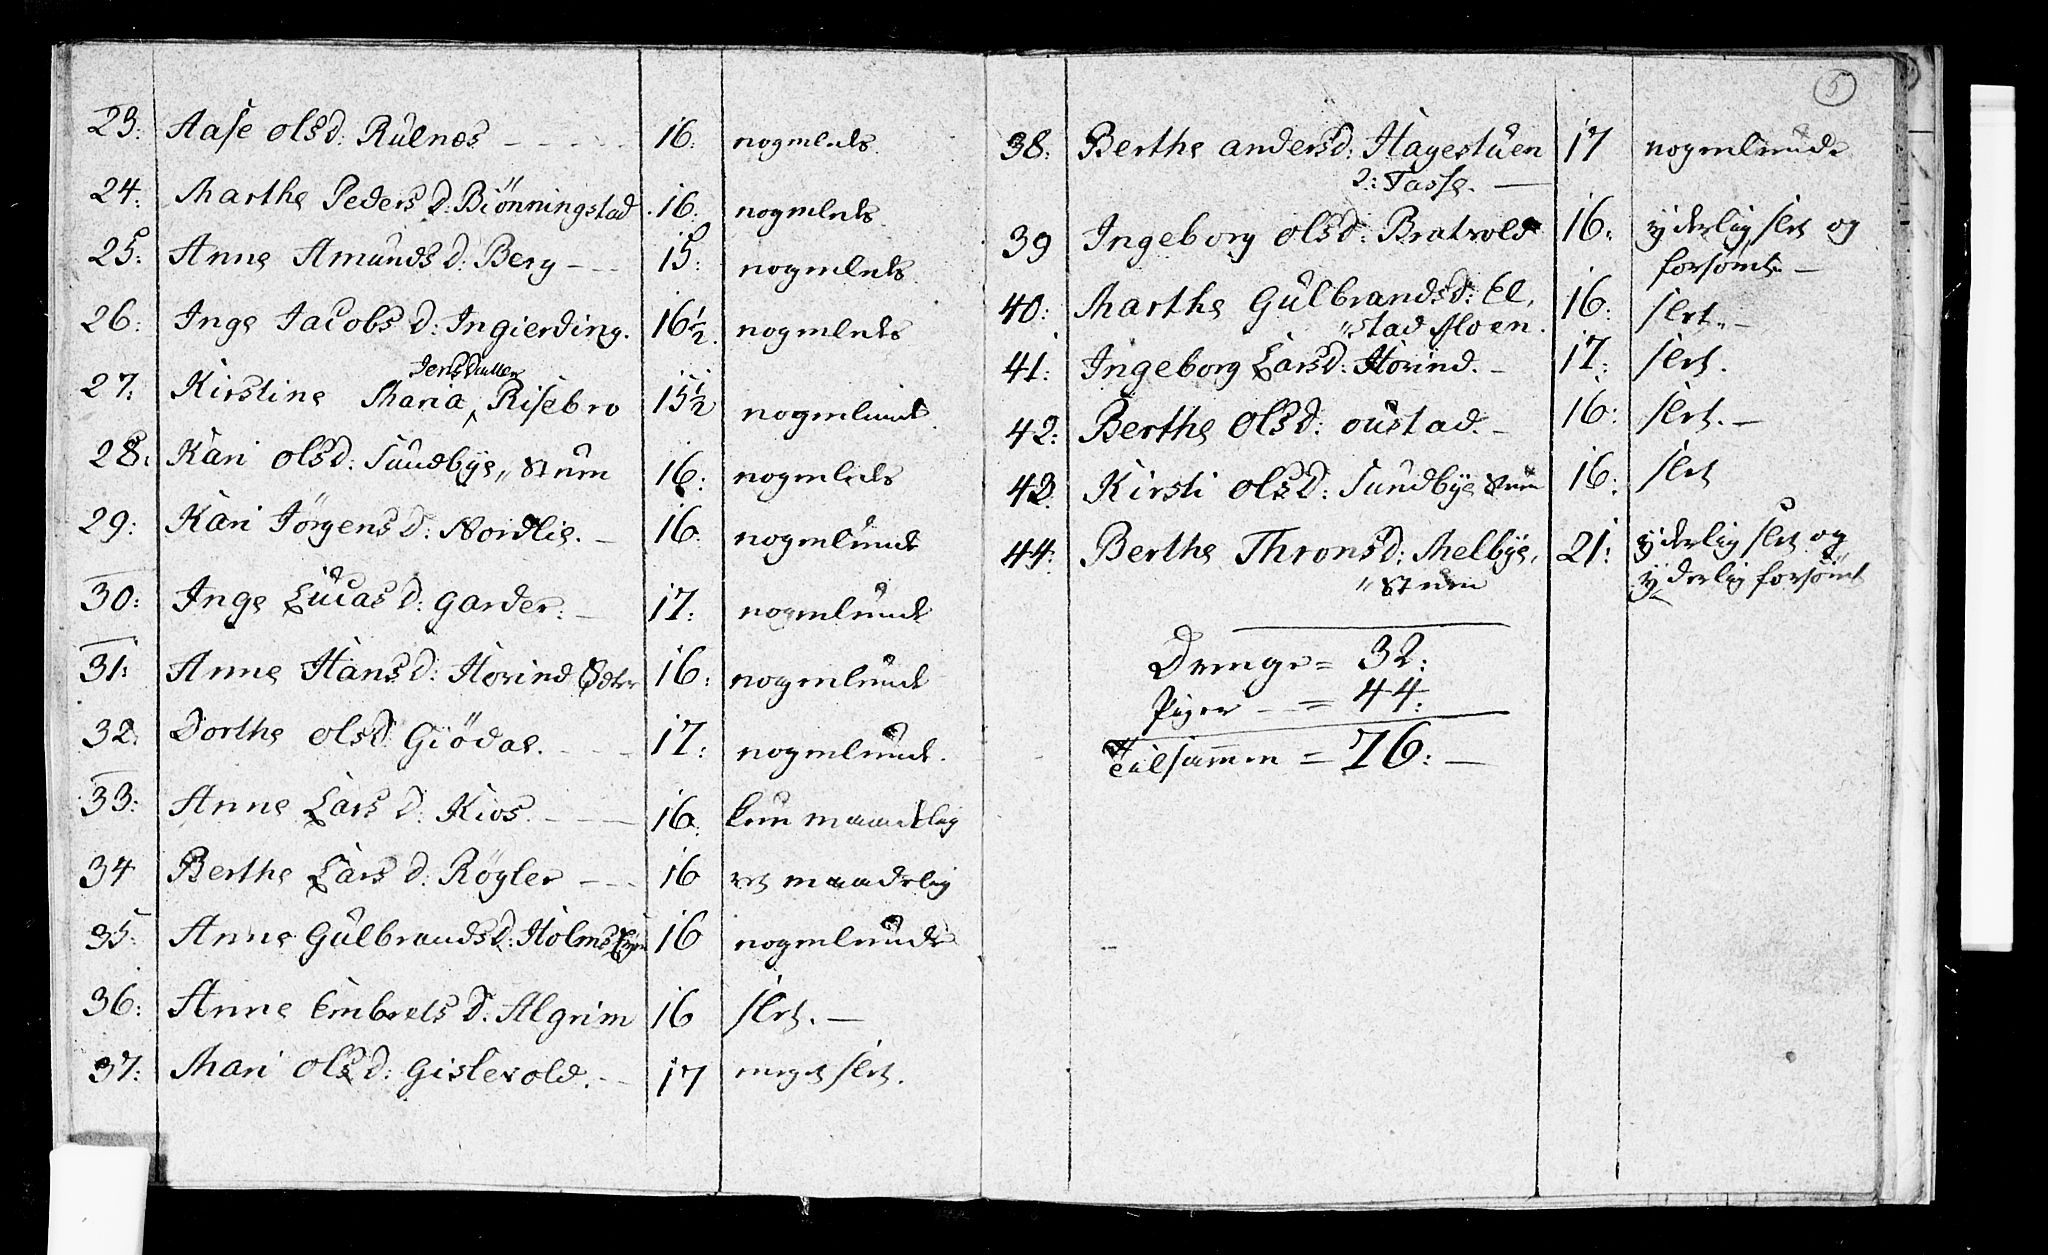 23: Aase Olsd: Rulnes - - - 16: nogenleds.
24: Marthe Peders D: Biönningstad 16: nogenleds
25: Anne Amunds D: Berg - - 15: nogenleds
26: Inge Jacobs D: Ingierding. 16½. nogenleds
Jensdatter
27: Kirstine Maria Risebro 15½ nogenlunde
28. Kari Olsd: Sundbye„ Stuen 16: nogenleds
29: Kari Jörgens D: Nordlie. - 16: nogenlunde
30: Inge Lucas D: Garder: - 17: nogenlunde
31: Anne Hans D: Hovind Östre 16: nogenlunde
32: Dorthe Olsd Giödal. - - 17: nogenlunde.
33: Anne Lars D: Kios. - - 16: kun maadelig
34 Berthe Lars D: Rögler - - 16 ret maadelig
35: Anne Gulbrands D: Holms 16 nogenlunde
36: Anne Embrets D: Algrim 16 slet. -
37: Mari Olsd: Gislevold. - - 17 meget slet.
5
38: Berthe Andersd: Hagestuen 17 nogenlunde
2: Tasse. -
39 Ingeborg Olsd: Bratvold 16: yderlig slet og
forsömt. -
40: Marthe Gulbrandsd: El, 16: slet. -
„stad Moen.
41: Ingeborg Larsd: Hovind. - 17: slet.
42: Berthe Olsd: Oustad. - 16: slet. -
43. Kirsti Olsd: Sundbye Stuen 16: slet
44: Berthe Thronsd: Melbye, 21: yderlig slet og
„Stuen yderlig forsömt
Drenge = 32:
Piger - = 44:
Tilsammen = 76: -